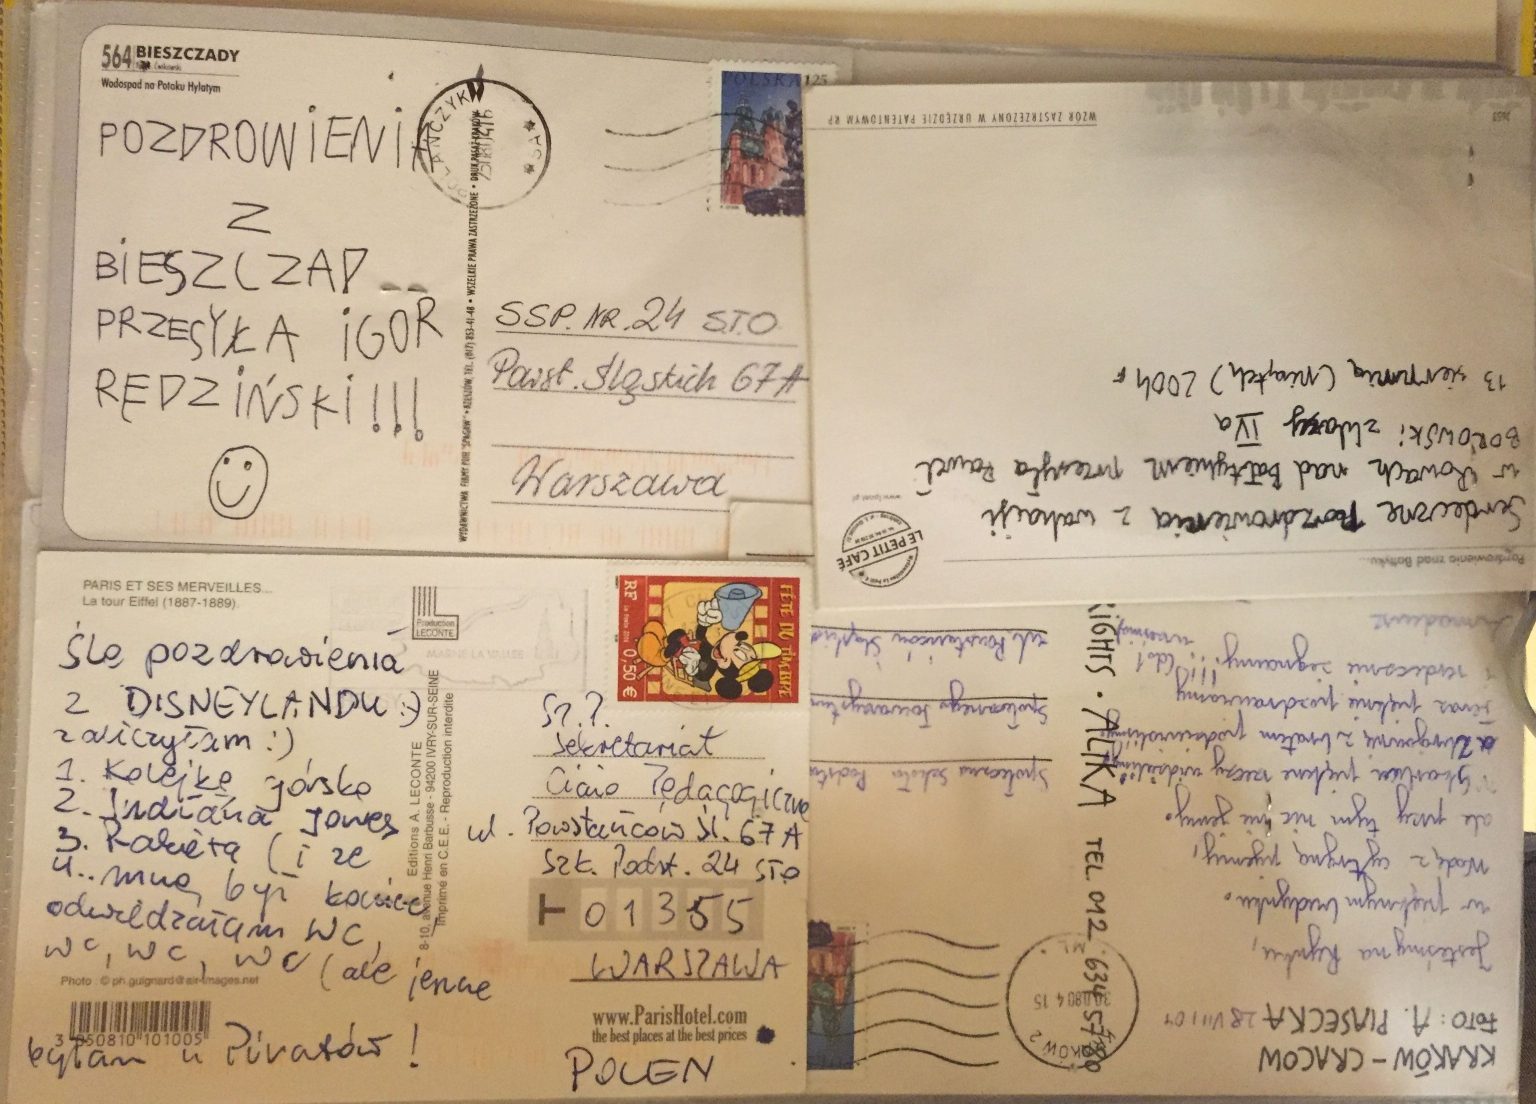 564 BIESZCZADY
Wodospad na Potoku Hylatym
POZDROWIENIA
Z
BIESZCZAD
PRZESYŁA IGOR
RĘDZIŃSKI!!!
WYDAWNICTWA FIRMY PUH "SPAGAW" • RZESZÓW, TEL. (017) 853-41-48 • WSZELKIE PRAWA ZASTRZEŻONE • DRUK
POLSKA 1,25
SSP. NR. 24 STO
Powst. Śląskich 67A
Warszawa
WZÓR ZASTRZEŻONY W URZĘDZIE PATENTOWYM RP
Pozdrowienia znad Bałtyku...
LE PETIT CAFÉ
Serdeczne Pozdrowienia z wakacji
w Rowach nad Bałtykiem przesyła Paweł
BOROWSKI z klasy IVa
13 sierpnia (piątek) 2004 r
PARIS ET SES MERVEILLES...
La tour Eiffel (1887-1889)
Production
LECONTE
Ślę pozdrowienia
z DISNEYLANDU :)
zaliczyłam :)
1. Kolejkę górską
2. Indiana Jones
3. Rakietą (i ze
4. mną był koniec,
odwiedzałam WC,
WC, WC, WC (ale jeszcze
byłam u Piratów!
Photo : © ph.guignard@air-images.net
3 050810 101005
Editions A. LECONTE
8-10, avenue Henri Barbusse - 94200 IVRY-SUR-SEINE
Imprimé en C.E.E. - Reproduction interdite
MARNE LA VALLEE
FETE DU TIMBRE
RF
0,50 €
Sz.P.
Sekretariat
Ciało Pedagogiczne
ul. Powstańców Śl. 67A
Szk. Podst. 24 STO
01355
WARSZAWA
www.ParisHotel.com
the best places at the best prices
POLEN
KRAKÓW - CRACOW
FOTO: A. PIASECKA 28 VIII 04
Jesteśmy na Rynku,
w pięknym budynku.
Wodę z cytryną pijemy,
ale przy tym nic nie jemy.
piękne rzeczy widzieliśmy
z bratem podziwialiśmy
Teraz pięknie pozdrawiamy
i serdecznie żegnamy!!!
RIGHTS • ALIKA TEL. 012 634 57 80
Społeczna Szkoła Podst
Społecznego Towarzystwa
ul. Powstańców Śląskich